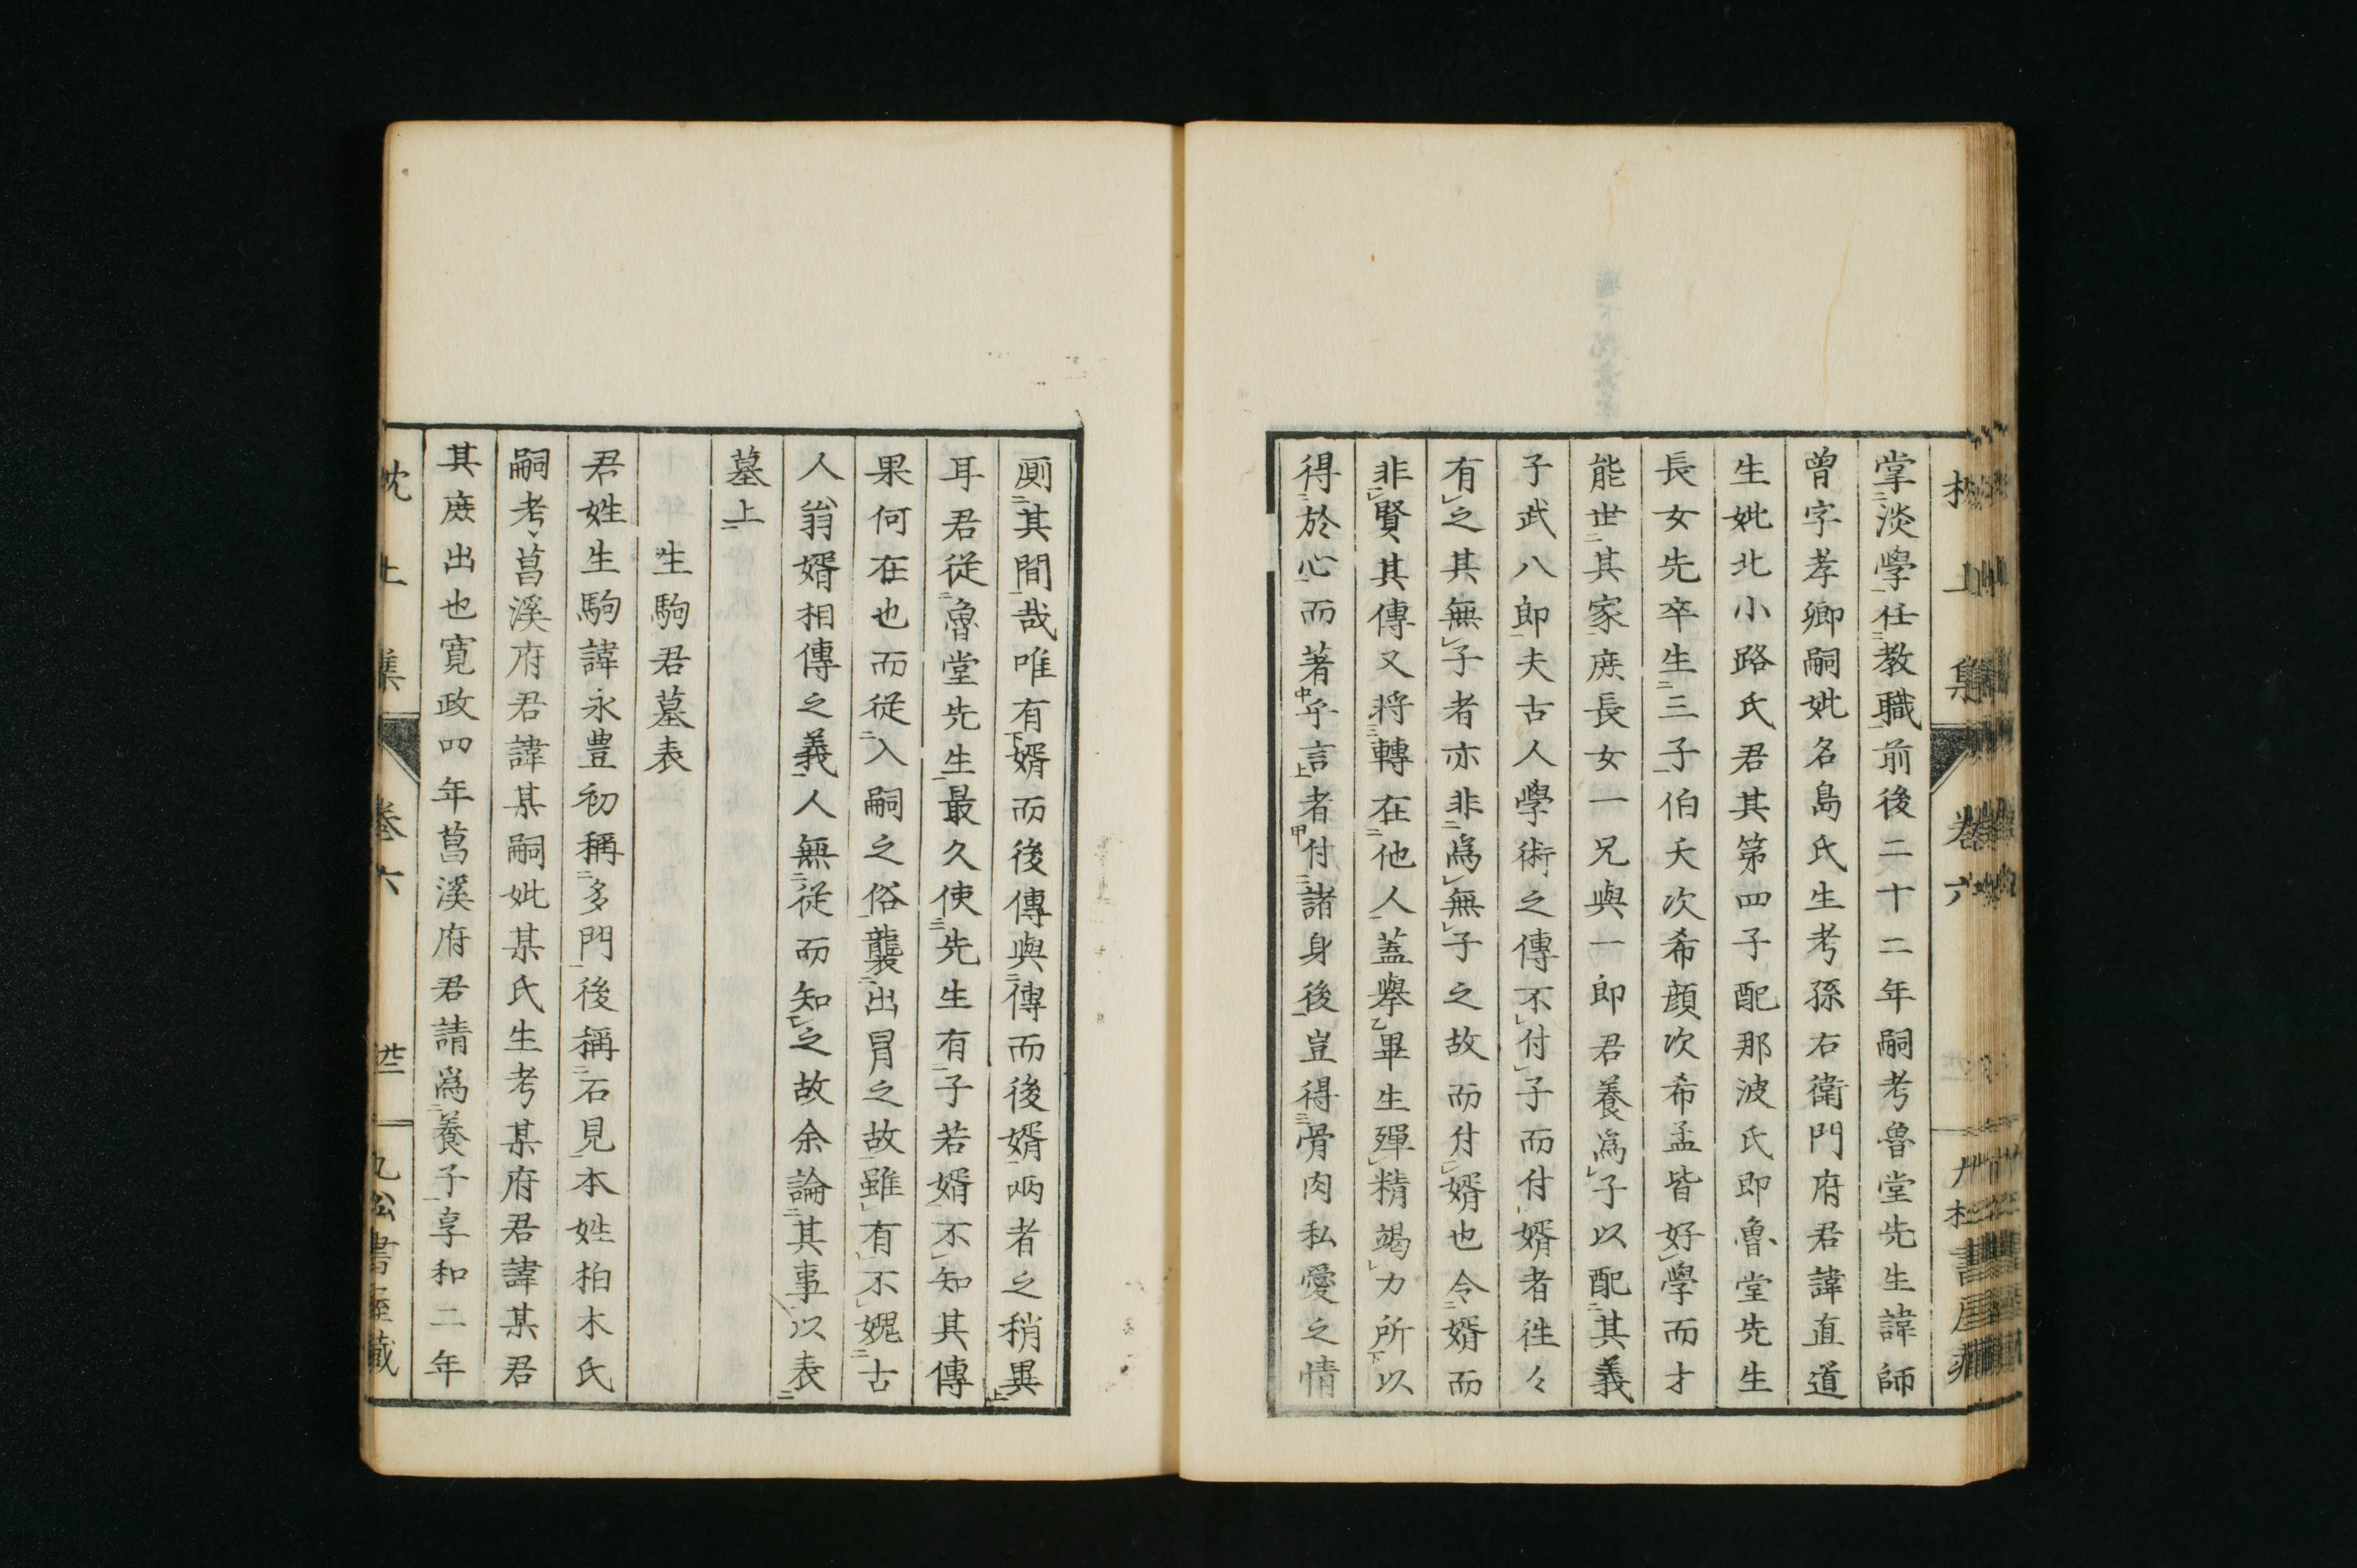 掌淡學任教職前後二十二年嗣考魯堂先生諱師
曾字孝卿嗣妣名島氏生考孫右衛門府君諱直道
生妣北小路氏君其第四子配那波氏即魯堂先生
長女先卒生三子伯夭次希顔次希孟皆好學而才
能世其家庶長女一兄與一郎君養爲子以配其義
子武八郎夫古人學術之傳不付子而付婿者往々
有之其無子者亦非爲無子之故而付婿也令婿而
非賢其傳又將轉在他人蓋擧畢生殫精竭力所以
得於心而著乎言者付諸身後豈得骨肉私愛之情
厠其間哉唯有婿而後傳與傳而後婿兩者之稍異
耳君從魯堂先生最久使先生有子若婿不知其傳
果何在也而從入嗣之俗襲出冒之故雖有不媿古
人翁婿相傳之義人無從而知之故余論其事以表
墓上
生駒君墓表
君姓生駒諱永豊初稱多門後稱石見本姓柏木氏
嗣考菖溪府君諱某嗣妣某氏生考某府君諱某君
其庶出也寛政四年菖溪府君請爲養子享和二年
上集
卷六